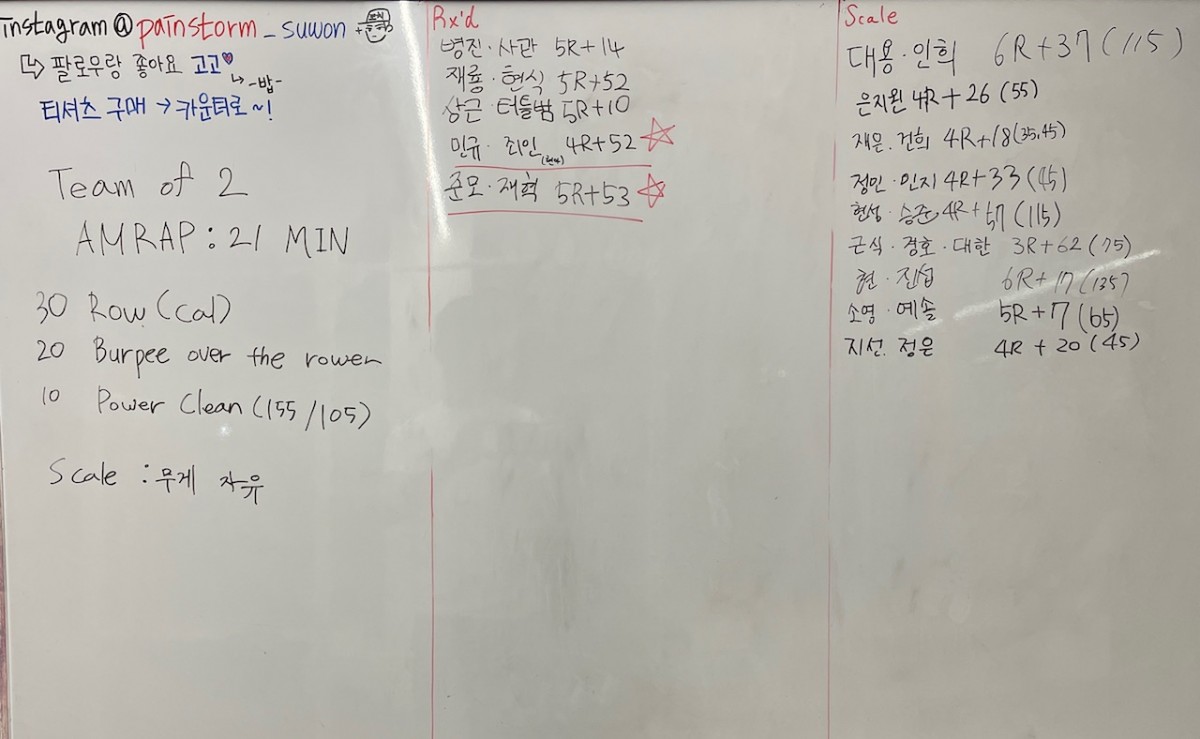 instagram@painstorm_suwon
팔로우랑 좋아요 고고
-밥-
티셔츠 구매 → 카운터로~!
Team of 2
AMRAP : 21 MIN
30 Row (cal)
20 Burpee over the rower
10 Power Clean (155/105)
Scale : 무게 자유
Rx'd
병진·사관 5R+14
재룡·현식 5R+52
상근·터틀범 5R+10
민규·죄인 4R+52
준모·재혁 5R+53
Scale
대용·인희 6R+37 (115)
은지원 4R+26 (55)
재은·건희 4R+18 (35,45)
정민·민지 4R+33 (45)
현성·승준 4R+57 (115)
근식·경호·대한 3R+62 (75)
현·진섭 6R+17 (135)
소영·예솔 5R+7 (65)
지선·정은 4R+20 (45)